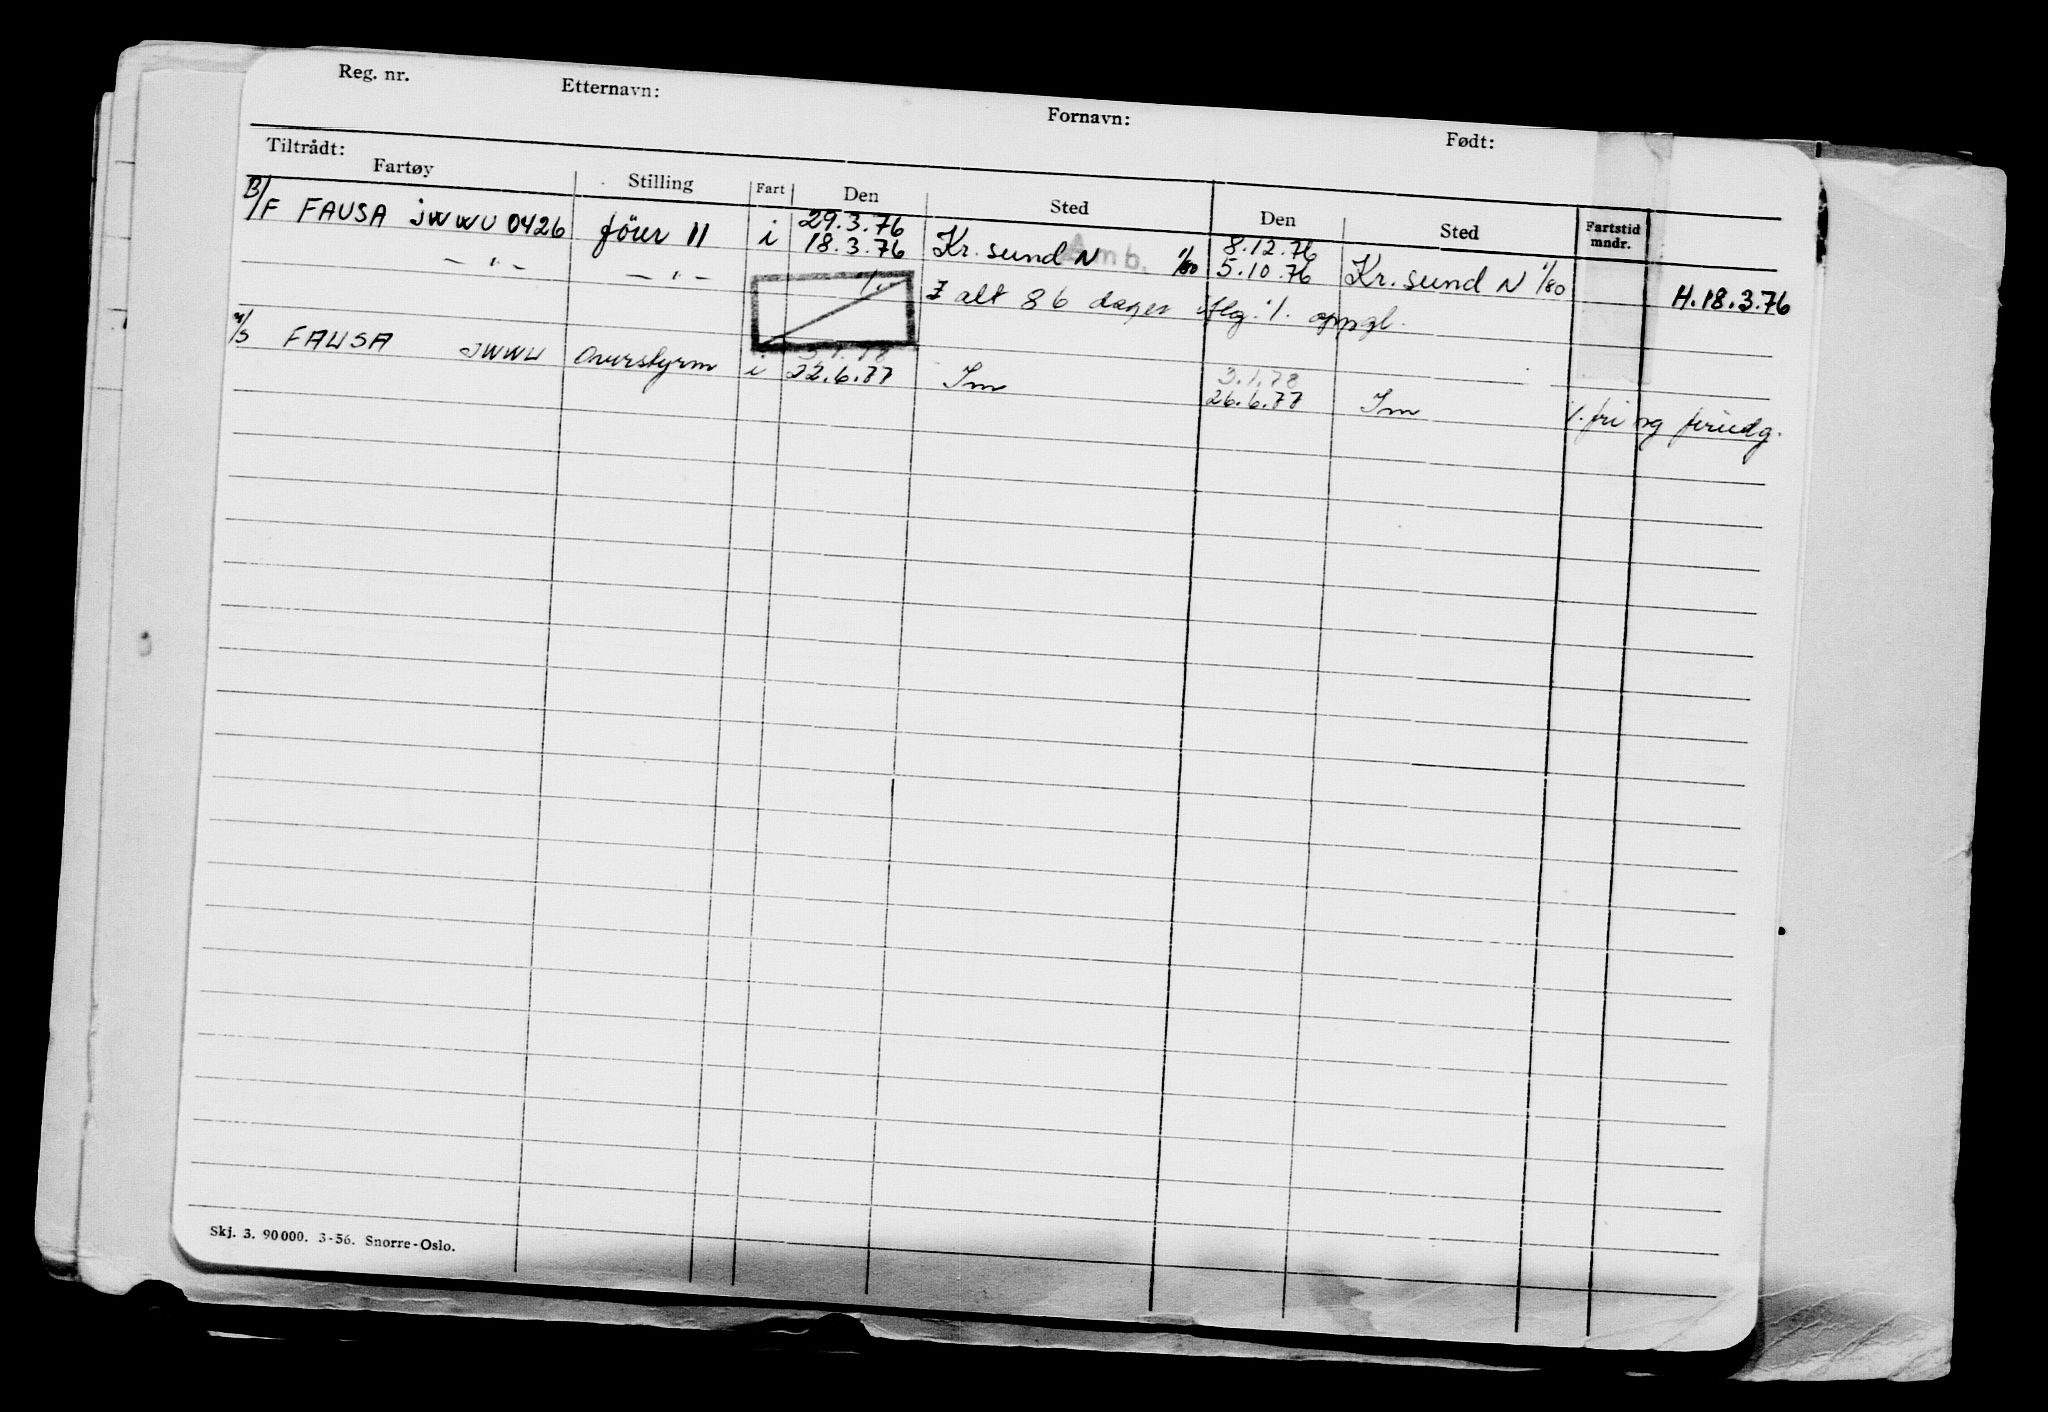 Reg. nr. Etternavn: Fornavn: Født:
Tiltrådt:
Fartøy Stilling Fart Den Sted Den Sted Fartstid mndr.
29.3.76 8.12.76
B/F FAUSA JWWU 0426 fører II i 18.3.76 Kr.sund N Amb. 1/80 5.10.76 Kr.sund N 1/80 H.18.3.76
— " — — " — I alt 86 dager oppgl.
3.1.78
M/S FAUSA JWWU Overstyrm i 22.6.77 Im 26.6.77 Im fri og feriedg.
Skj. 3. 90000. 3-56. Snorre-Oslo.